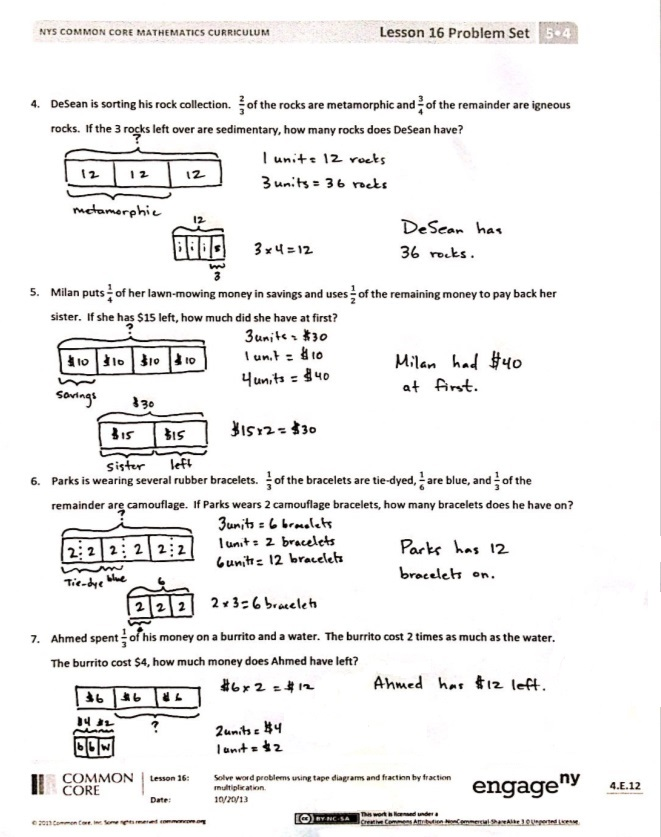 NYS COMMON CORE MATHEMATICS CURRICULUM Lesson 16 Problem Set 5•4
4. DeSean is sorting his rock collection. 2/3 of the rocks are metamorphic and 3/4 of the remainder are igneous
rocks. If the 3 rocks left over are sedimentary, how many rocks does DeSean have?
?
12 12 12
1 unit = 12 rocks
3 units = 36 rocks
metamorphic
12
i i i s
3
3 x 4 = 12
DeSean has
36 rocks.
5. Milan puts 1/4 of her lawn-mowing money in savings and uses 1/2 of the remaining money to pay back her
sister. If she has $15 left, how much did she have at first?
?
$10 $10 $10 $10
savings
3 units = $30
1 unit = $10
4 units = $40
Milan had $40
at first.
$30
$15 $15
sister left
$15x2 = $30
6. Parks is wearing several rubber bracelets. 1/3 of the bracelets are tie-dyed, 1/6 are blue, and 1/3 of the
remainder are camouflage. If Parks wears 2 camouflage bracelets, how many bracelets does he have on?
?
2 2 2 2 2 2
Tie-dye blue
3 units = 6 bracelets
1 unit = 2 bracelets
6 units = 12 bracelets
Parks has 12
bracelets on.
6
2 2 2
2 x 3 = 6 bracelets
7. Ahmed spent 1/3 of his money on a burrito and a water. The burrito cost 2 times as much as the water.
The burrito cost $4, how much money does Ahmed have left?
$6 $6 $6
$6 x 2 = $12
Ahmed has $12 left.
$4 $2
?
b b w
2 units = $4
1 unit = $2
COMMON CORE
Lesson 16: Solve word problems using tape diagrams and fraction by fraction
multiplication.
Date: 10/20/13
engage ny
4.E.12
© 2013 Common Core, Inc. Some rights reserved. commoncore.org
CC BY-NC-SA
This work is licensed under a
Creative Commons Attribution-NonCommercial-ShareAlike 3.0 Unported License.